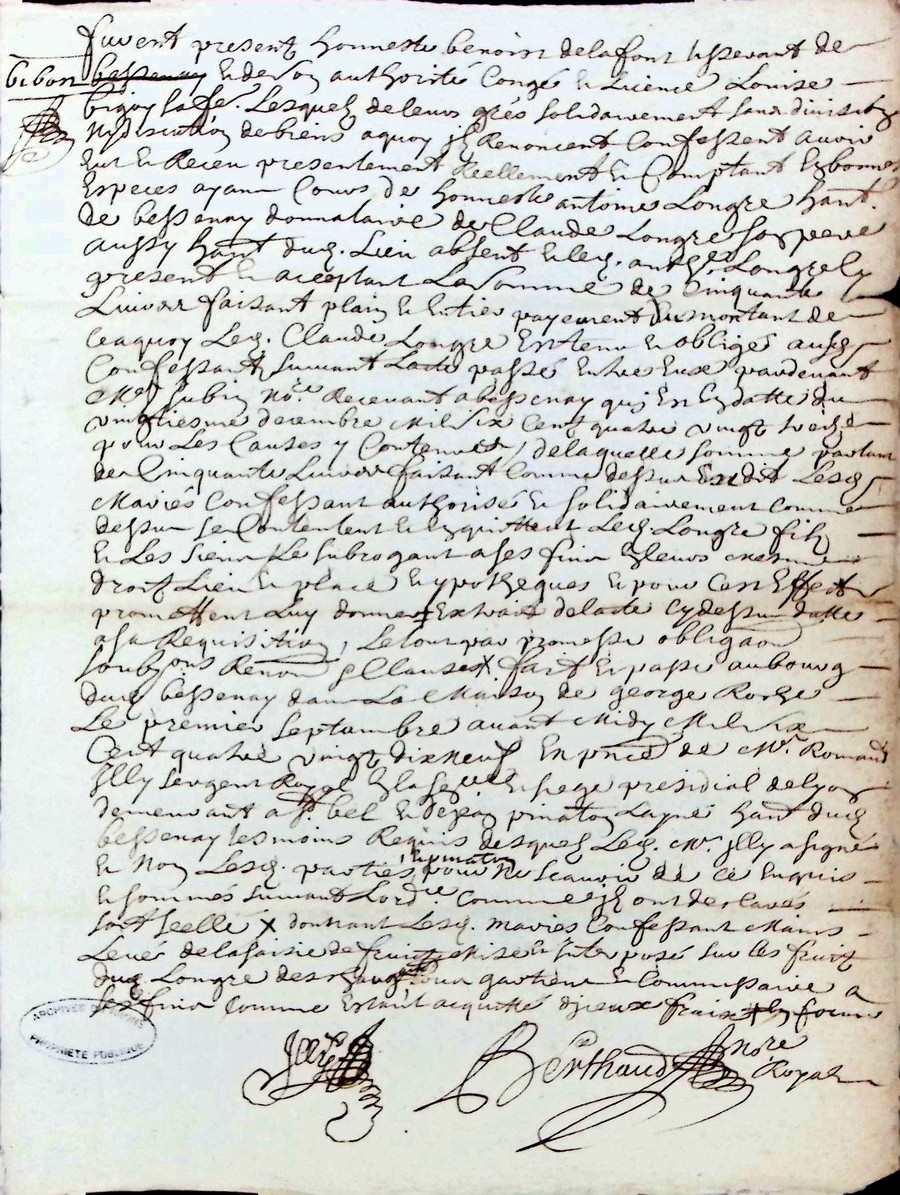 furent present honneste benoist delafont tisserant de
bibost bessenay et de son authorité Congé et Licence Louise
bigoy sa fe. Lesquels de leurs grés solidairement sans division
ny discution de biens a quoy ils Renoncent Confessent avoir
eut et Receu presentement Reellement et Comptant en bonnes
Especes ayant Cours de honneste antoine Longre hant.
de bessenay donnataire de Claude Longre son pere
aussy hant dud. Lieu absent et led. anthe. Longre icy
present et acceptant La somme de Cinquante
Livres faisant plain et Entier payement du montant de
ce a quoy Led. Claude Longre Est tenu et obligé ausd.
Confessants suivant Lacte passé Entre Eux pardevant
Me. subin Nore. Recevant a bessenay quj Est En datte du
vingtiesme decembre Mil six Cent quatre vingt treize
pour Les Causes y Contenues, de laquelle somme partant
de Cinquante Livres faisant Comme dessus Est dit Lesd.
Mariés Confessant authorisé et solidairement Comme
dessus se Contentent et en quittent Led. Longre fils
et Les siens Le subrogant a ses fins En leurs mesme
droit Lieu et place et ypotheques et pour Cest Effect
promettent Luy donner Extrait de lacte cy dessus datté
a sa Requisition, Le tout par promesse obligaon
soubzons Renon et Clauses X fait et passé au bourg
dud. bessenay dans La Maison de george Roche
Le premier septembre avant Midy Mil six
Cent quatre vingt dix neuf En pnce de Mr. Romand
Jlly sergent Royal En la senee et siege presidial de lyon
demeurant a st bel et dejean pinaton Layné hant dud.
bessenay tesmoins Requis desquels Led. Mr. Jlly a signé
et Non Lesd. parties, et pinaton pour Ne scavoir de ce Enquis
et sommés suivant Lordce. Comme ils ont declarés
soit scellé X donnant Lesd. mariés Confessant Mains
Levée de la saisie de fruits Mise et Interposé sur les fruits
dud. Longre deschargent gartien et Commissaire a
ses fins Comme Estant acquitté djeux frais + en forme
Jlly
Berthaud Nore Royal
ARCHIVES DU RHONE
PROPRIETE PUBLIQUE